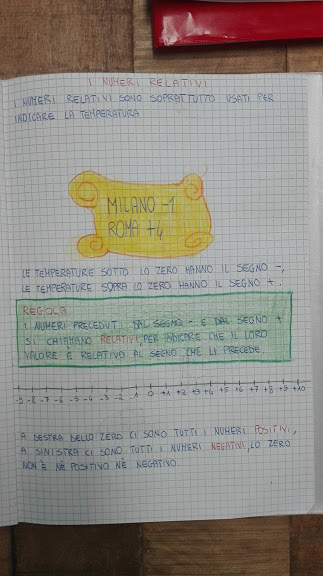 I NUMERI RELATIVI
I NUMERI RELATIVI SONO SOPRATTUTTO USATI PER
INDICARE LA TEMPERATURA
MILANO -1
ROMA +4
LE TEMPERATURE SOTTO LO ZERO HANNO IL SEGNO -,
LE TEMPERATURE SOPRA LO ZERO HANNO IL SEGNO +.
REGOLA
I NUMERI PRECEDUTI DAL SEGNO - E DAL SEGNO +
SI CHIAMANO RELATIVI, PER INDICARE CHE IL LORO
VALORE È RELATIVO AL SEGNO CHE LI PRECEDE.
-9 -8 -7 -6 -5 -4 -3 -2 -1 0 +1 +2 +3 +4 +5 +6 +7 +8 +9 +10
A DESTRA DELLO ZERO CI SONO TUTTI I NUMERI POSITIVI,
A SINISTRA CI SONO TUTTI I NUMERI NEGATIVI, LO ZERO
NON È NÈ POSITIVO NÈ NEGATIVO.